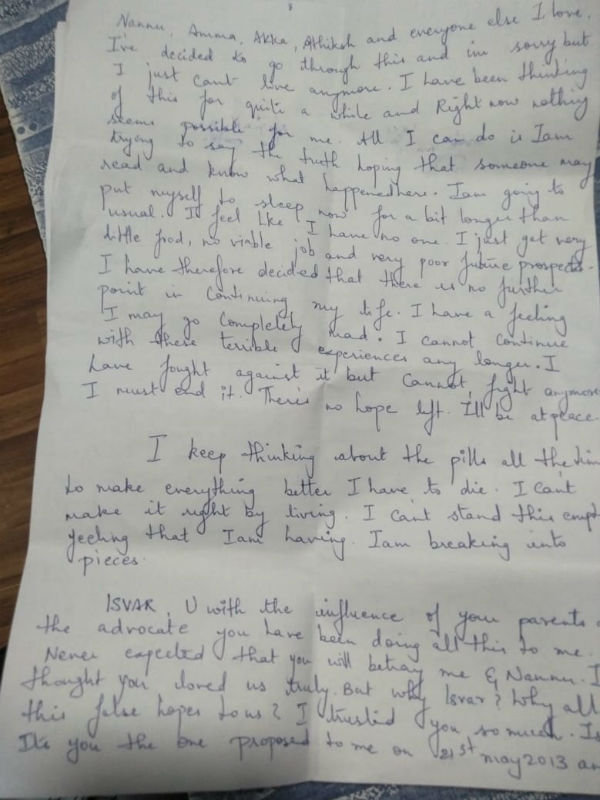 Nannu, Amma, Akka, Athiksh and everyone else I love.
I've decided to go through this and im sorry but
I just cant live anymore. I have been thinking
of this for quite a while and Right now nothing
seems possible for me. All I can do is Iam
trying to say the truth hoping that someone may
read and know what happened here. Iam going to
put myself to sleep now for a bit longer than
usual. I feel like I have no one. I just get very
little food, no viable job and very poor future prospects.
I have therefore decided that there is no further
point in continuing my life. I have a feeling
I may go completely mad. I cannot continue
with these terrible experiences any longer. I
have fought against it but cannot fight anymore
I must end it. There's no hope left. I'll be at peace.
I keep thinking about the pills all the
to make everything better I have to die. I cant
make it right by living. I can't stand this
feeling that Iam having. Iam breaking into
pieces.
ISVAR, U with the influence of your parents
the advocate you have been doing all this to me.
Never expected that you will betray me & Nannu. I
thought you loved us truly. But why Isvar? Why all
this false hopes to us? I trusted you so much.
Its you the one proposed to me on 21st may 2013